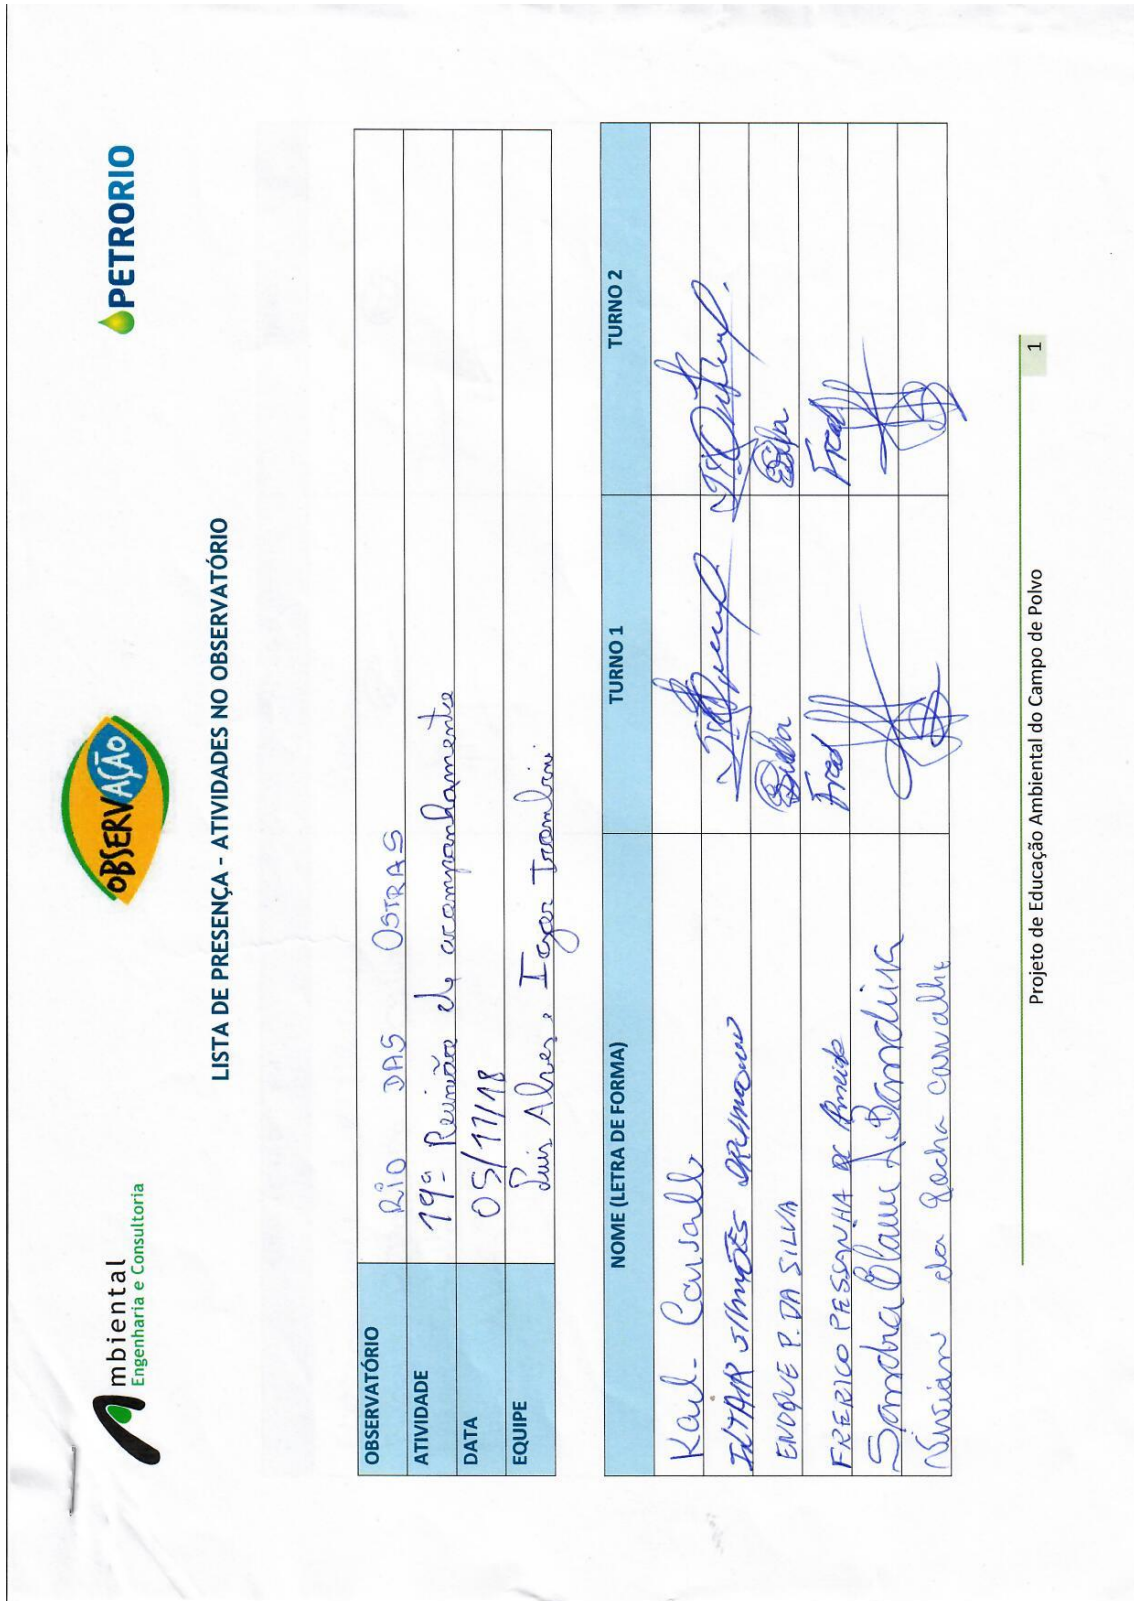 Ambiental
Engenharia e Consultoria
OBSERVAÇÃO
PETRORIO
LISTA DE PRESENÇA - ATIVIDADES NO OBSERVATÓRIO
OBSERVATÓRIO RIO DAS OSTRAS
ATIVIDADE 19ª Reunião de acompanhamento
DATA 05/11/18
EQUIPE Luis Alves,
NOME (LETRA DE FORMA) TURNO 1 TURNO 2
Karl
SIMÕES
ENOQUE P. DA SILVA Silva
FRERICO PESSANHA DE Almeida Fred Fred
Sandra A. Bandeira
da Rocha Carvalho
Projeto de Educação Ambiental do Campo de Polvo 1